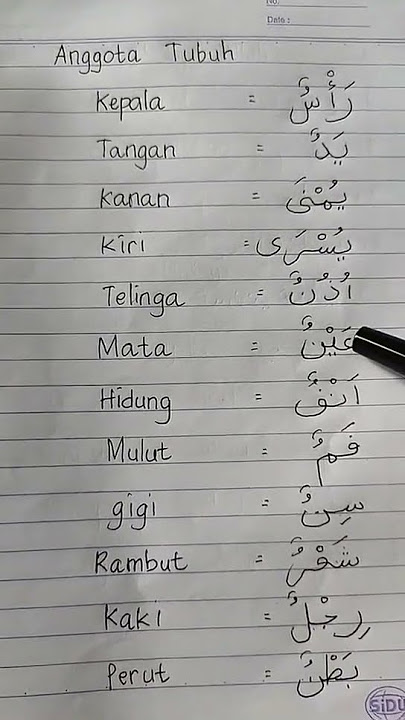 No.
Date :
Anggota Tubuh
Kepala = رَأْسٌ
Tangan = يَدٌ
Kanan = يُمْنَى
Kiri = يُسْرَى
Telinga = اُذُنٌ
Mata = عَيْنٌ
Hidung = اَنْفٌ
Mulut = فَمٌ
gigi = سِنٌّ
Rambut = شَعْرٌ
Kaki = رِجْلٌ
Perut = بَطْنٌ
SiDU